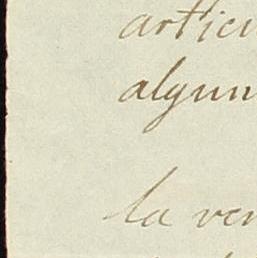 artícu
algun
la ver